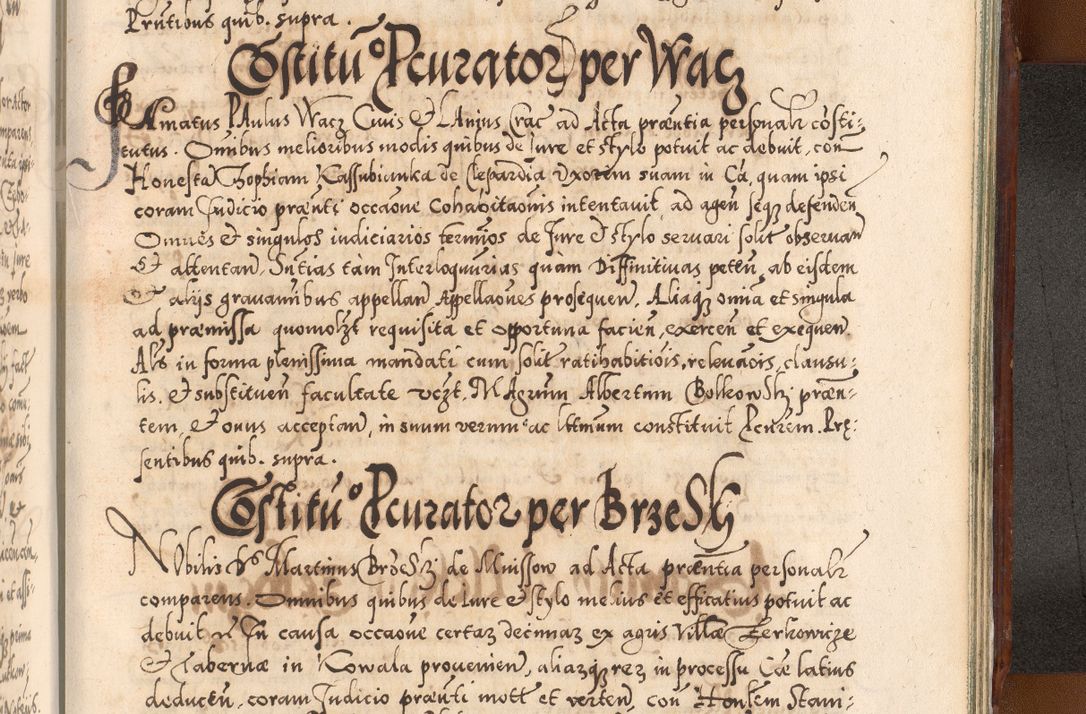 Prntibus quib. supra.
Costitu° Pcurator per Wacz
Famatus PAulus Wacz Civis Et LAnius Crac ad Acta præntia personalr costi-
tutus. Omnibus melioribus modis quibus de Jure et stylo potuit ac debuit, con
Honesta Zophiam Kassubianka de Clepardia Uxorem suam in Ca, quam ipsi
coram Judicio prænti occaone Cohabitaonis intentauit, ad agen seqz defenden
Omnes Et singulos iudiciarios termios de Jure et stylo seruari solit obseruan
Et attentan. Sntias tam Interloqutrias quam Diffinitiuas peten, ab eisdem
Et alijs grauaminibus appellan Appellaones prosequen. Aliaqz omnia et singula
ad præmissa quomolzt requisita et opportuna facien, exercen et exequen
Als in forma plenissima mandati cum solit ratihabitiois, releuaois, clausu-
lis. Et substituen facultate vczt. MAgrum Albertum Bolkowski præn-
tem, Et onus acceptan, in suum verum ac lttmum constituit Pcurem. Prę-
sentibus quib. supra.
Costitu° Pcurator per BrzeSky
NObilis Ds Martinus BrzeSky de Mnissow ad Acta præntia personalr
comparens. Omnibus quibus de Jure et stylo melius et efficatius potuit ac
debuit In causa occaone certaz decimaz ex agris Villæ Zerkowicze
Et Tabernæ in Kowala prouenien, aliazqz rez in processu Cæ latius
deducten, coram Judicio prænti mott et verten, con Honlem Stani-